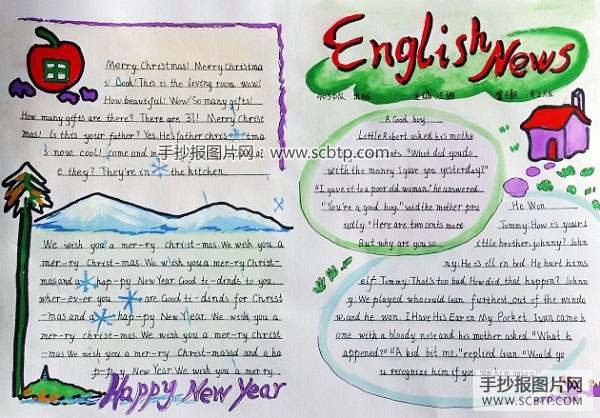 Merry Christmas! Merry Christma
s! Look! This is the living room wow!
How beautiful! Wow! So many gifts!
How many gifts are there? There are 31! Merry Christ
mas! Is this your father? Yes. He's father chris tma
s now. cool! come and
e they? They're in the kitchen.
We wish you a mer-ry christ-mas. We wish you a
mer-ry christ-mas. We wish you a mer-ry christ-
mas and a hap-py New Year. Good ti-dinds to you,
wher-ev-er you are Good ti-dinds for Christ
-mas and a hap-py New Year. We wish you a
mer-ry christ-mas. We wish you a mer-ry christ
-mas. We wish you a mer-ry Christ-mas and a ha
p-py New Year We wish you a mer-ry
Happy New Year
English News
A Good boy
Little Robert asked his mothe
cents. "What did you do
with the money I gave you yesterday?"
"I gave it to a poor old woman," he answered.
"You're a good boy," said the mother pro
udly. "Here are two cents more.
But why are you so
He Won
Tommy: How is your li
ttle brother, johnny? John
ny: He is ill in bed. He hurt hims
elf. Tommy: That's too bad. How did that happen? Johnn
y: We played who could lean furthest out of the windo
w, and he won. I Have His Ear in My Pocket Ivan came h
ome with a bloody nose and his mother asked. "What h
appened?" "A kid bit me," replied Ivan. "Would yo
u recognize him if you
手抄报图片网 www.scbtp.com
手抄报图片网
WWW.SCBTP.COM